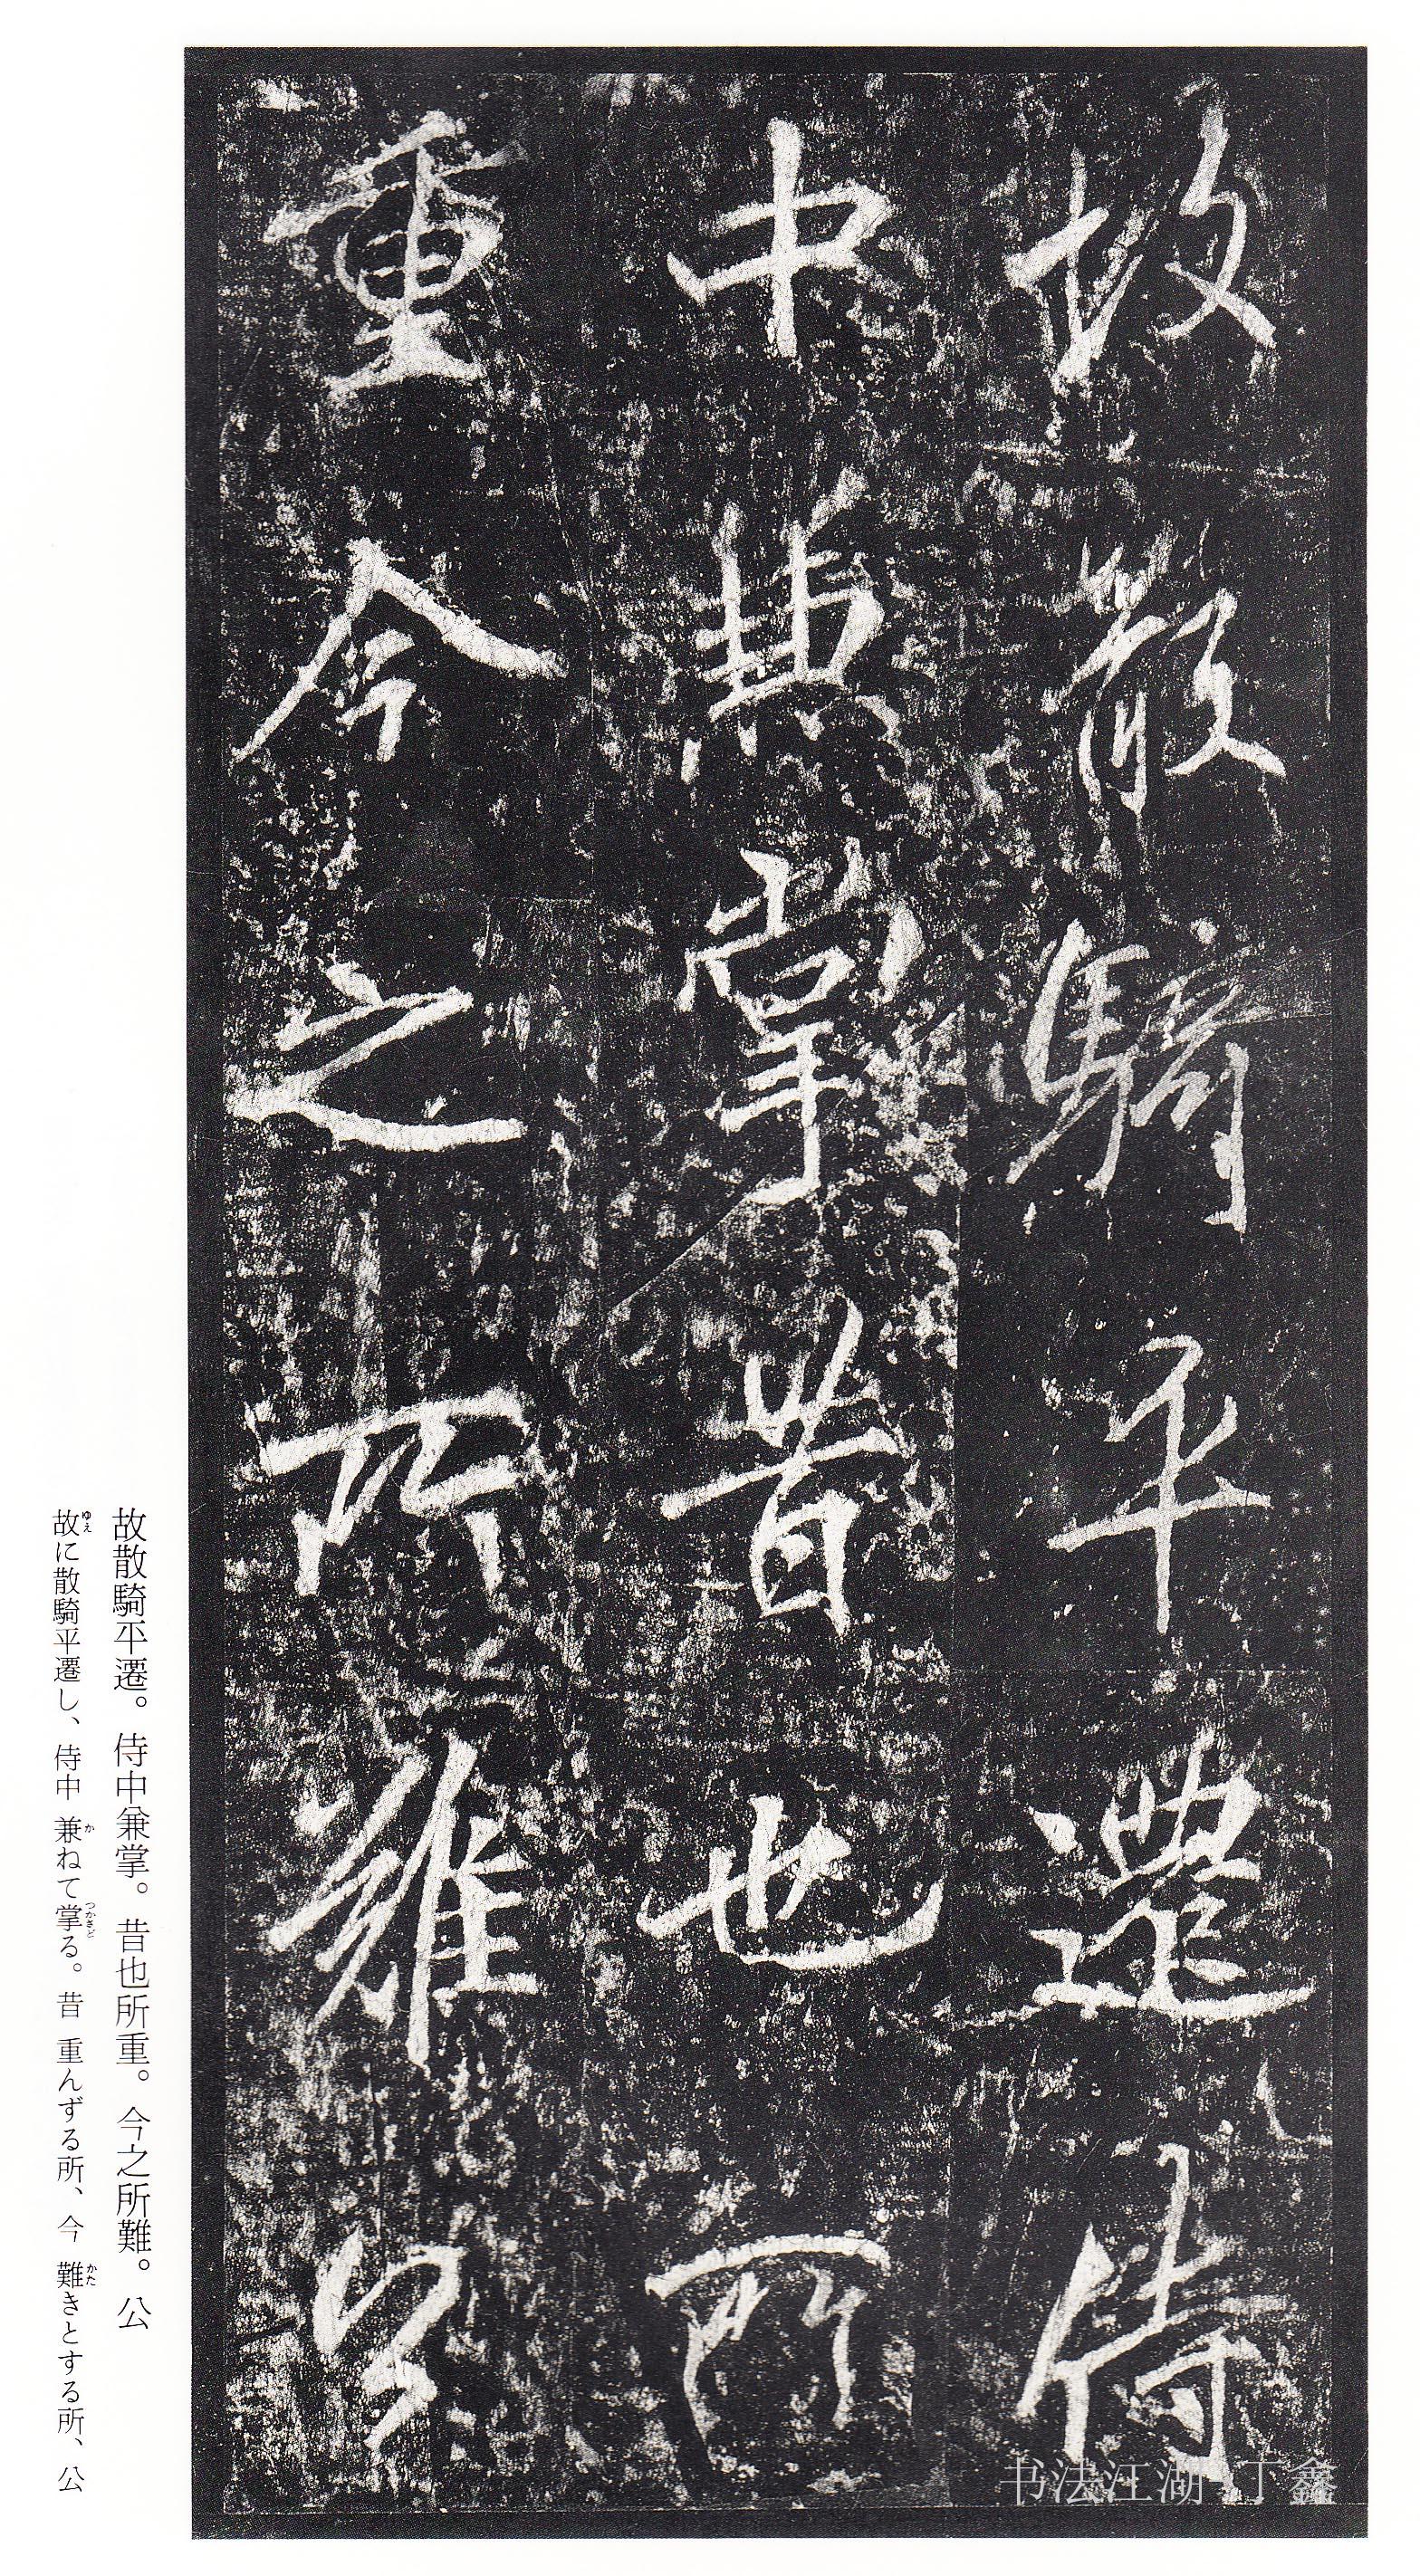 故散騎平遷侍
中典掌昔也所
重今之所難公
故散騎平遷。侍中兼掌。昔也所重。今之所難。公
故に散騎平遷し、侍中 兼ねて掌る。昔 重んずる所、今 難きとする所、公
ゆえ
か
つかさど
かた
书法江湖 丁鑫